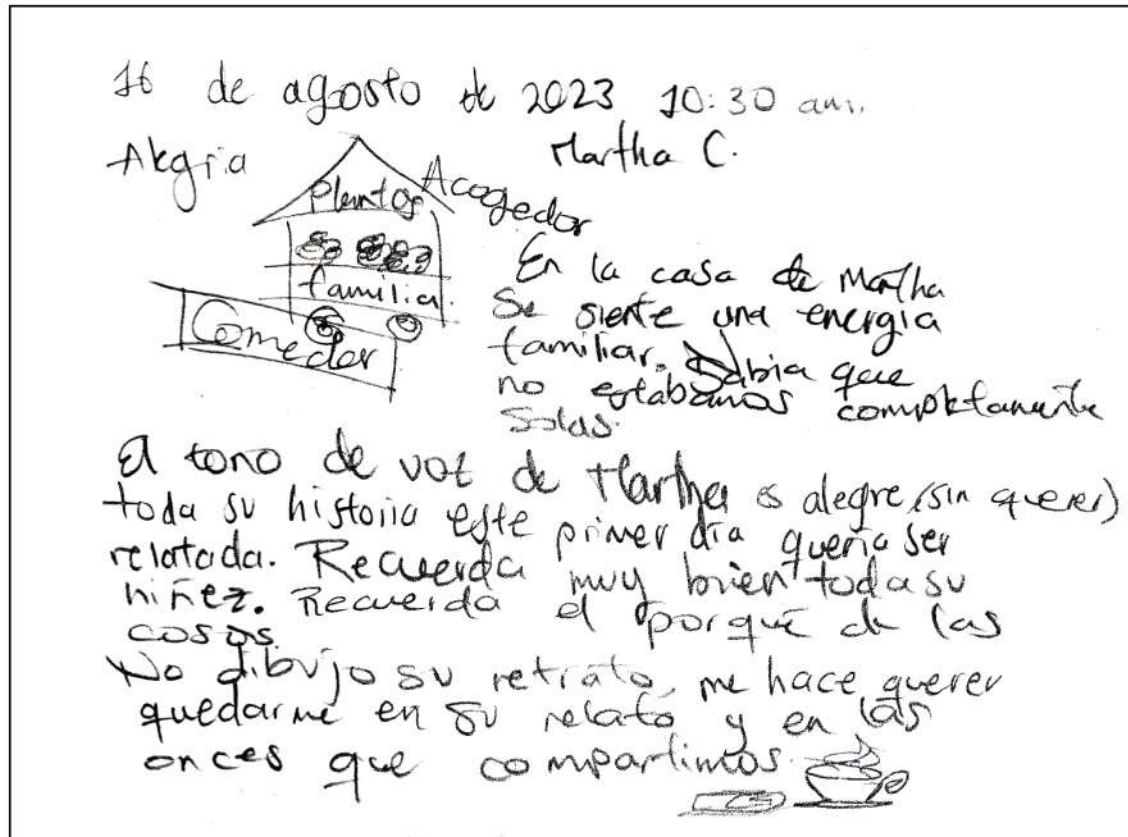 16 de agosto de 2023 10:30 am.
Alegria
Martha C.
Plantas
Acogedor
familia.
Comedor
En la casa de Martha
Se siente una energia
familiar. Sabia que
no estabamos completamente
Solas.
El tono de voz de Martha es alegre (sin querer)
toda su historia este primer dia queria ser
relatada. Recuerda muy bien toda su
niñez. Recuerda el porqué de las
cosas.
No dibujo su retrato, me hace querer
quedarme en su relato y en las
onces que compartimos.